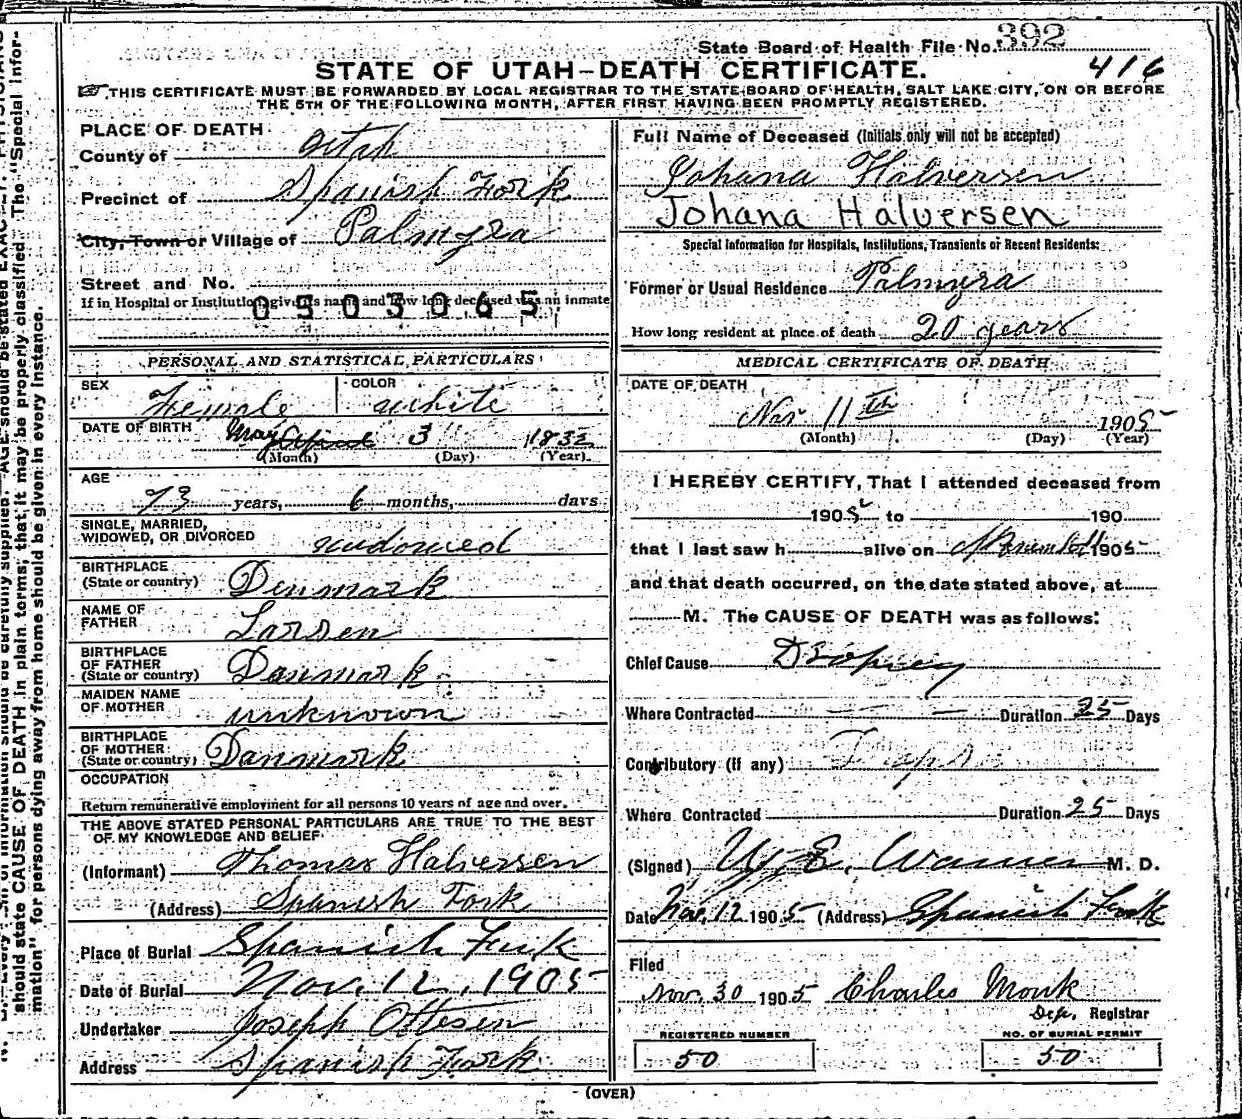 State Board of Health File No. 392
416
STATE OF UTAH—DEATH CERTIFICATE.
THIS CERTIFICATE MUST BE FORWARDED BY LOCAL REGISTRAR TO THE STATE BOARD OF HEALTH, SALT LAKE CITY, ON OR BEFORE
THE 5TH OF THE FOLLOWING MONTH, AFTER FIRST HAVING BEEN PROMPTLY REGISTERED.
PLACE OF DEATH
County of Utah
Precinct of Spanish Fork
City, Town or Village of Palmyra
Street and No.
If in Hospital or Institution give its name and how long deceased was an inmate
0503065
PERSONAL AND STATISTICAL PARTICULARS
SEX Female COLOR white
DATE OF BIRTH May April 3 1832
(Month) (Day) (Year)
AGE
73 years, 6 months, days
SINGLE, MARRIED,
WIDOWED, OR DIVORCED widowed
BIRTHPLACE
(State or country) Denmark
NAME OF
FATHER Larsen
BIRTHPLACE
OF FATHER
(State or country) Danmark
MAIDEN NAME
OF MOTHER unknown
BIRTHPLACE
OF MOTHER
(State or country) Danmark
OCCUPATION
Return remunerative employment for all persons 10 years of age and over.
THE ABOVE STATED PERSONAL PARTICULARS ARE TRUE TO THE BEST
OF MY KNOWLEDGE AND BELIEF
(Informant) Thomas Halversen
(Address) Spanish Fork
Place of Burial Spanish Fork
Date of Burial Nov. 12, 1905
Undertaker Joseph Ottesen
Address Spanish Fork
Full Name of Deceased (Initials only will not be accepted)
Johana Halversen
Johana Halversen
Special Information for Hospitals, Institutions, Transients or Recent Residents:
Former or Usual Residence Palmyra
How long resident at place of death 20 years
MEDICAL CERTIFICATE OF DEATH
DATE OF DEATH
Nov 11th 1905
(Month) (Day) (Year)
I HEREBY CERTIFY, That I attended deceased from
1905 to 190
that I last saw h alive on 1905
and that death occurred, on the date stated above, at
M. The CAUSE OF DEATH was as follows:
Chief Cause Dropsy
Where Contracted Duration 25 Days
Contributory (if any)
Where Contracted Duration 25 Days
(Signed) Warner M. D.
Date Nov. 12 1905 (Address) Spanish Fork
Filed
Nov. 30 1905 Charles Monk
Dep. Registrar
REGISTERED NUMBER
50
NO. OF BURIAL PERMIT
50
(OVER)
should state CAUSE OF DEATH in plain terms, that it may be properly classified. The "Special Infor-
mation" for persons dying away from home should be given in every instance.